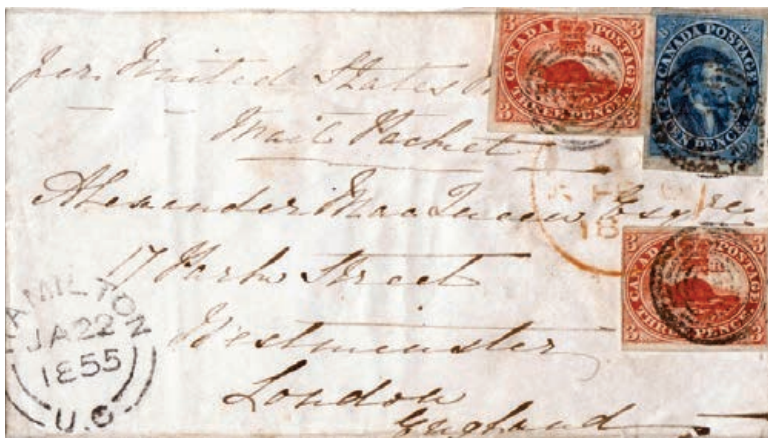 per United States
Mail Packet
Alexander Esqre
17 Park Street
Westminster
London
England
CANADA POSTAGE
THREE PENCE
3 3 3 3
CANADA POSTAGE
TEN PENCE
CANADA POSTAGE
THREE PENCE
3 3 3 3
HAMILTON
JA 22
1855
U.C
18